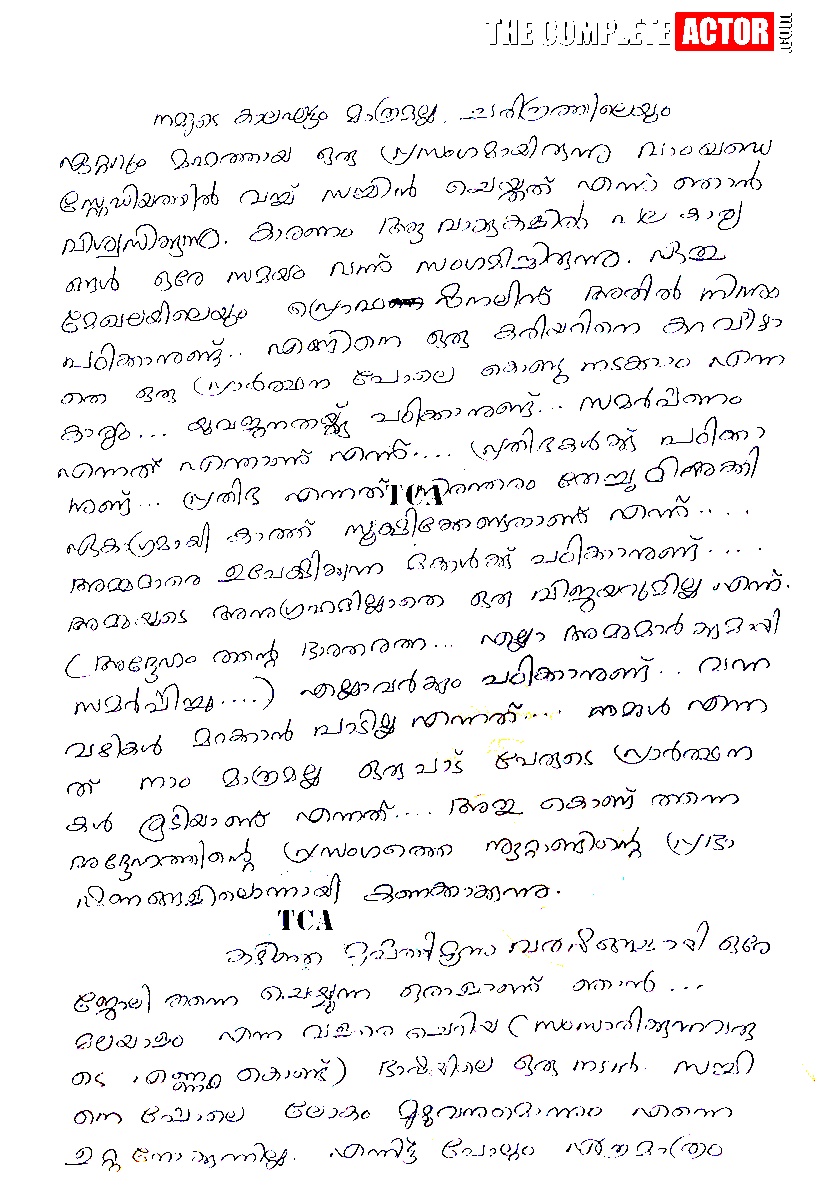 THE COMPLETE ACTOR
നമ്മുടെ കാലഘട്ടം മാത്രമല്ല, ചരിത്രത്തിലെയും
ഏറ്റവും മഹത്തായ ഒരു പ്രസംഗമായിരുന്നു വാംഖഡെ
സ്റ്റേഡിയത്തിൽ വച്ച് സച്ചിൻ ചെയ്തത് എന്ന് ഞാൻ
വിശ്വസിക്കുന്നു. കാരണം ആ വാക്കുകളിൽ പല കാര്യ
ങ്ങൾ ഒരേ സമയം വന്ന് സംഗമിച്ചിരുന്നു. ഏതു
മേഖലയിലെയും പ്രൊഫ ഷനലിന് അതിൽ നിന്നും
പഠിക്കാനുണ്ട്.. എങ്ങിനെ ഒരു കരിയറിനെ കറ വീഴാ
തെ ഒരു പ്രാർത്ഥന പോലെ കൊണ്ടു നടക്കാം എന്ന
കാര്യം... യുവജനതയ്ക്കു പഠിക്കാനുണ്ട്... സമർപ്പണം
എന്നത് എന്താണ് എന്ന്.... പ്രതിഭകൾക്ക് പഠിക്കാ
നുണ്ട്... പ്രതിഭ എന്നത് നിരന്തരം തേച്ചു മിനുക്കി
TCA
ഏകാഗ്രമായി കാത്ത് സൂക്ഷിക്കേണ്ടതാണ് എന്ന്....
അമ്മമാരെ ഉപേക്ഷിക്കുന്ന മക്കൾക്ക് പഠിക്കാനുണ്ട്....
അമ്മയുടെ അനുഗ്രഹമില്ലാതെ ഒരു വിജയവുമില്ല എന്ന്.
(അദ്ദേഹം തന്റെ ഭാരതരത്ന... എല്ലാ അമ്മമാർക്കുമായി
സമർപ്പിച്ചു....) എല്ലാവർക്കും പഠിക്കാനുണ്ട്.. വന്ന
വഴികൾ മറക്കാൻ പാടില്ല എന്നത്... നമ്മൾ എന്ന
ത് നാം മാത്രമല്ല ഒരുപാട് പേരുടെ പ്രാർത്ഥന
കൾ കൂടിയാണ് എന്നത്.... അതു കൊണ്ട് തന്നെ
അദ്ദേഹത്തിന്റെ പ്രസംഗത്തെ നൂറ്റാണ്ടിന്റെ പ്രഭാ
ഷണങ്ങളിലൊന്നായി കണക്കാക്കുന്നു.
TCA
കഴിഞ്ഞ മുപ്പത്തിമൂന്നു വർഷങ്ങളായി ഒരേ
ജോലി തന്നെ ചെയ്യുന്ന ഒരാളാണ് ഞാൻ...
മലയാളം എന്ന വളരെ ചെറിയ (സംസാരിക്കുന്നവരു
ടെ എണ്ണം കൊണ്ട്) ഭാഷയിലെ ഒരു നടൻ. സച്ചി
നെ പോലെ ലോകം മുഴുവനുമൊന്നും എന്നെ
ഉറ്റു നോക്കുന്നില്ല. എന്നിട്ട് പോലും എത്രമാത്രം